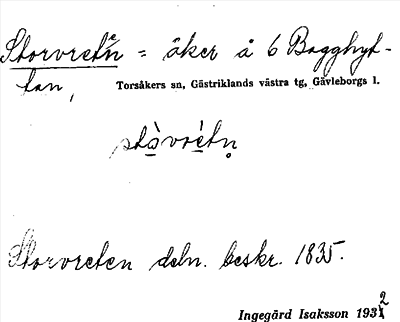 Storvreten = åker å 6 Bagghyt-
tan, Torsåkers sn, Gästriklands västra tg, Gävleborgs l.
stòvrètn̥
Storvreten deln. beskr. 1835.
Ingegärd Isaksson 1932